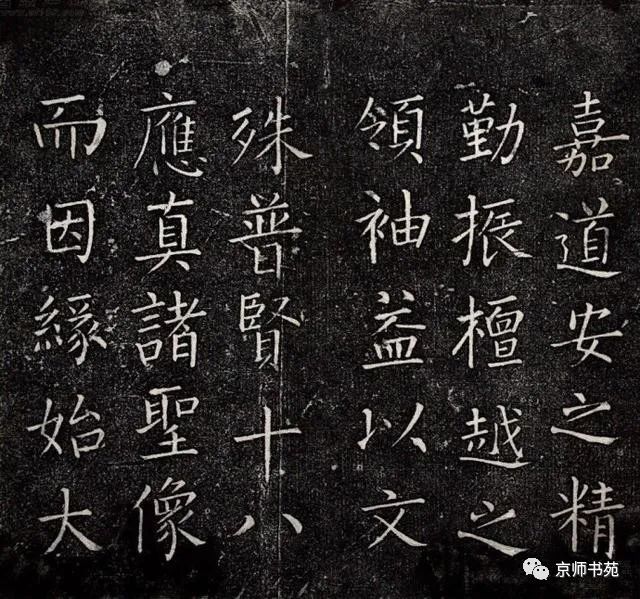 嘉道安之精
勤振檀越之
領袖益以文
殊普賢十八
應真諸聖像
而因緣始大
京师书苑